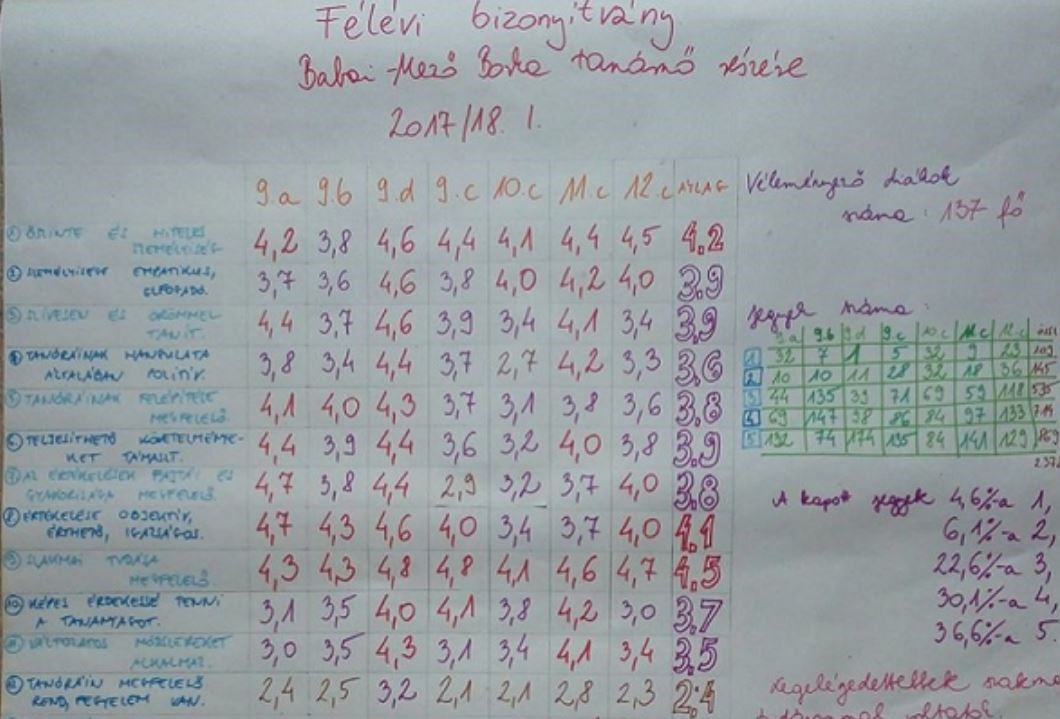 Félévi bizonyítvány
Babai-Mező Borka tanárnő részére
2017/18. I.
9.a 9.b 9.d 9.c 10.c 11.c 12.c ÁTLAG
① ŐSZINTE ÉS HITELES SZEMÉLYISÉG. 4,2 3,8 4,6 4,4 4,1 4,4 4,5 4.2
② SZEMÉLYISÉGE EMPATIKUS, ELFOGADÓ. 3,7 3,6 4,6 3,8 4,0 4,2 4,0 3,9
③ SZÍVESEN ÉS ÖRÖMMEL TANÍT. 4,4 3,7 4,6 3,9 3,4 4,1 3,4 3,9
④ TANÓRÁINAK HANGULATA ÁLTALÁBAN POZITÍV. 3,8 3,4 4,4 3,7 2,7 4,2 3,3 3,6
⑤ TANÓRÁINAK FELÉPÍTÉSE MEGFELELŐ. 4,1 4,0 4,3 3,7 3,1 3,8 3,6 3,8
⑥ TELJESÍTHETŐ KÖVETELMÉNYE-KET TÁMASZT. 4,4 3,9 4,4 3,6 3,2 4,0 3,8 3,9
⑦ AZ ÉRTÉKELÉSEK FAJTÁI ÉS GYAKORISÁGA MEGFELELŐ. 4,7 3,8 4,4 2,9 3,2 3,7 4,0 3,8
⑧ ÉRTÉKELÉSE OBJEKTÍV, ÉRTHETŐ, IGAZSÁGOS. 4,7 4,3 4,6 4,0 3,4 3,7 4,0 4,1
⑨ SZAKMAI TUDÁSA MEGFELELŐ. 4,3 4,3 4,8 4,8 4,1 4,6 4,7 4,5
⑩ KÉPES ÉRDEKESSÉ TENNI A TANANYAGOT. 3,1 3,5 4,0 4,1 3,8 4,2 3,0 3,7
⑪ VÁLTOZATOS MÓDSZEREKET ALKALMAZ. 3,0 3,5 4,3 3,1 3,4 4,1 3,4 3,5
⑫ TANÓRÁIN MEGFELELŐ REND, FEGYELEM VAN. 2,4 2,5 3,2 2,1 2,1 2,8 2,3 2.4
Véleményező diákok
száma: 137 fő
Jegyek száma:
9.a 9.b 9.d 9.c 10.c 11.c 12.c
1 32 7 1 5 32 9 23 109
2 10 10 11 28 32 18 36 145
3 44 135 39 71 69 59 118 535
4 69 147 98 86 84 97 133 714
5 192 74 174 195 84 141 129
A kapott jegyek 4,6%-a 1,
6,1%-a 2,
22,6%-a 3,
30,1%-a 4,
36,6%-a 5.
Legelégedettebbek szakmai